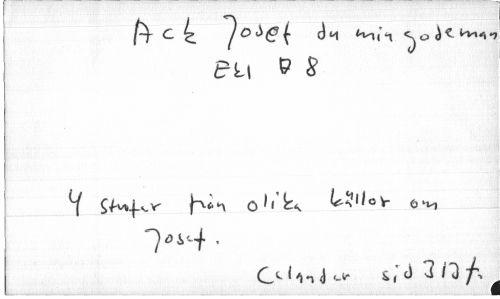 Ack Josef du min godeman
Ek1 B 8
4 strofer från olika källor om
Josef.
Celander sid 313 f.